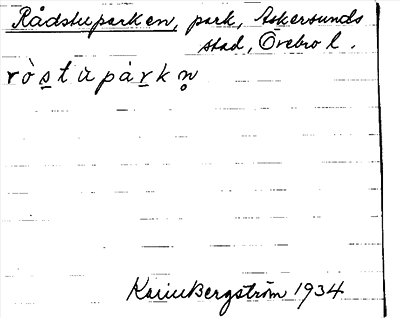 Rådstuparken, park, Askersunds
stad, Örebro l.
ròstu̇̀pȧ̀rkn̥
Karin Bergström 1934